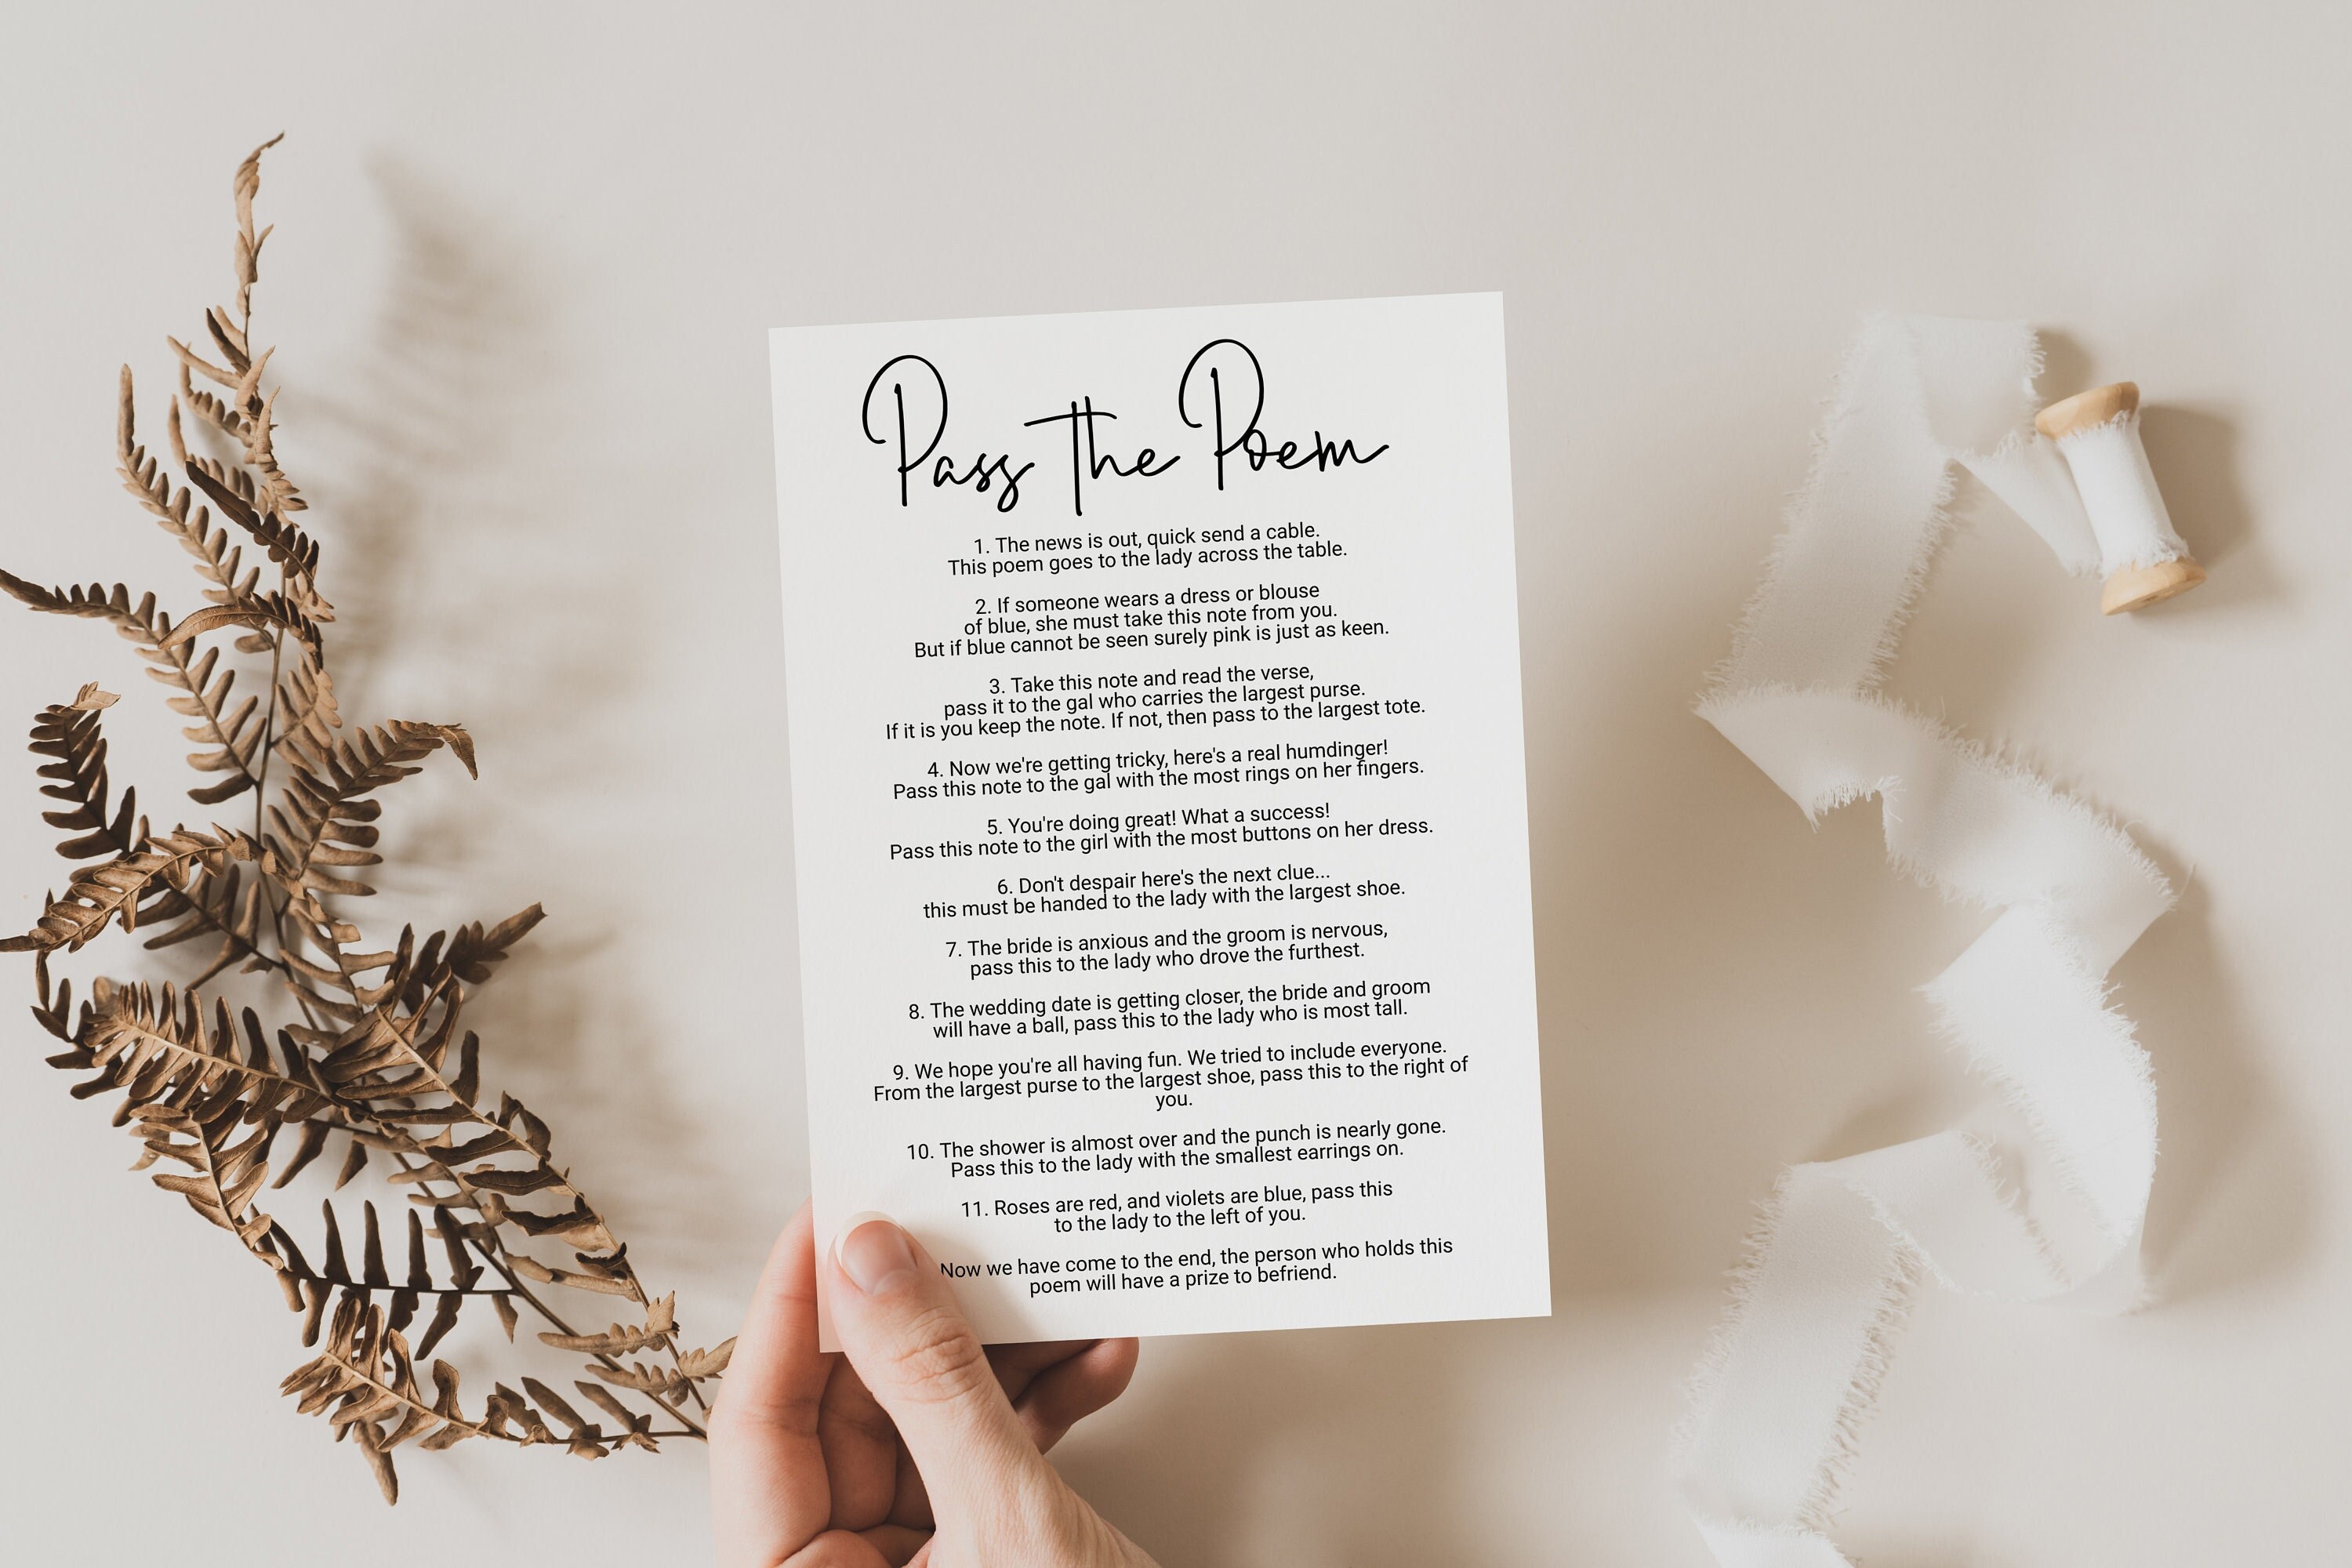 Pass the Poem
1. The news is out, quick send a cable.
This poem goes to the lady across the table.
2. If someone wears a dress or blouse
of blue, she must take this note from you.
But if blue cannot be seen surely pink is just as keen.
3. Take this note and read the verse,
pass it to the gal who carries the largest purse.
If it is you keep the note. If not, then pass to the largest tote.
4. Now we're getting tricky, here's a real humdinger!
Pass this note to the gal with the most rings on her fingers.
5. You're doing great! What a success!
Pass this note to the girl with the most buttons on her dress.
6. Don't despair here's the next clue...
this must be handed to the lady with the largest shoe.
7. The bride is anxious and the groom is nervous,
pass this to the lady who drove the furthest.
8. The wedding date is getting closer, the bride and groom
will have a ball, pass this to the lady who is most tall.
9. We hope you're all having fun. We tried to include everyone.
From the largest purse to the largest shoe, pass this to the right of
you.
10. The shower is almost over and the punch is nearly gone.
Pass this to the lady with the smallest earrings on.
11. Roses are red, and violets are blue, pass this
to the lady to the left of you.
Now we have come to the end, the person who holds this
poem will have a prize to befriend.